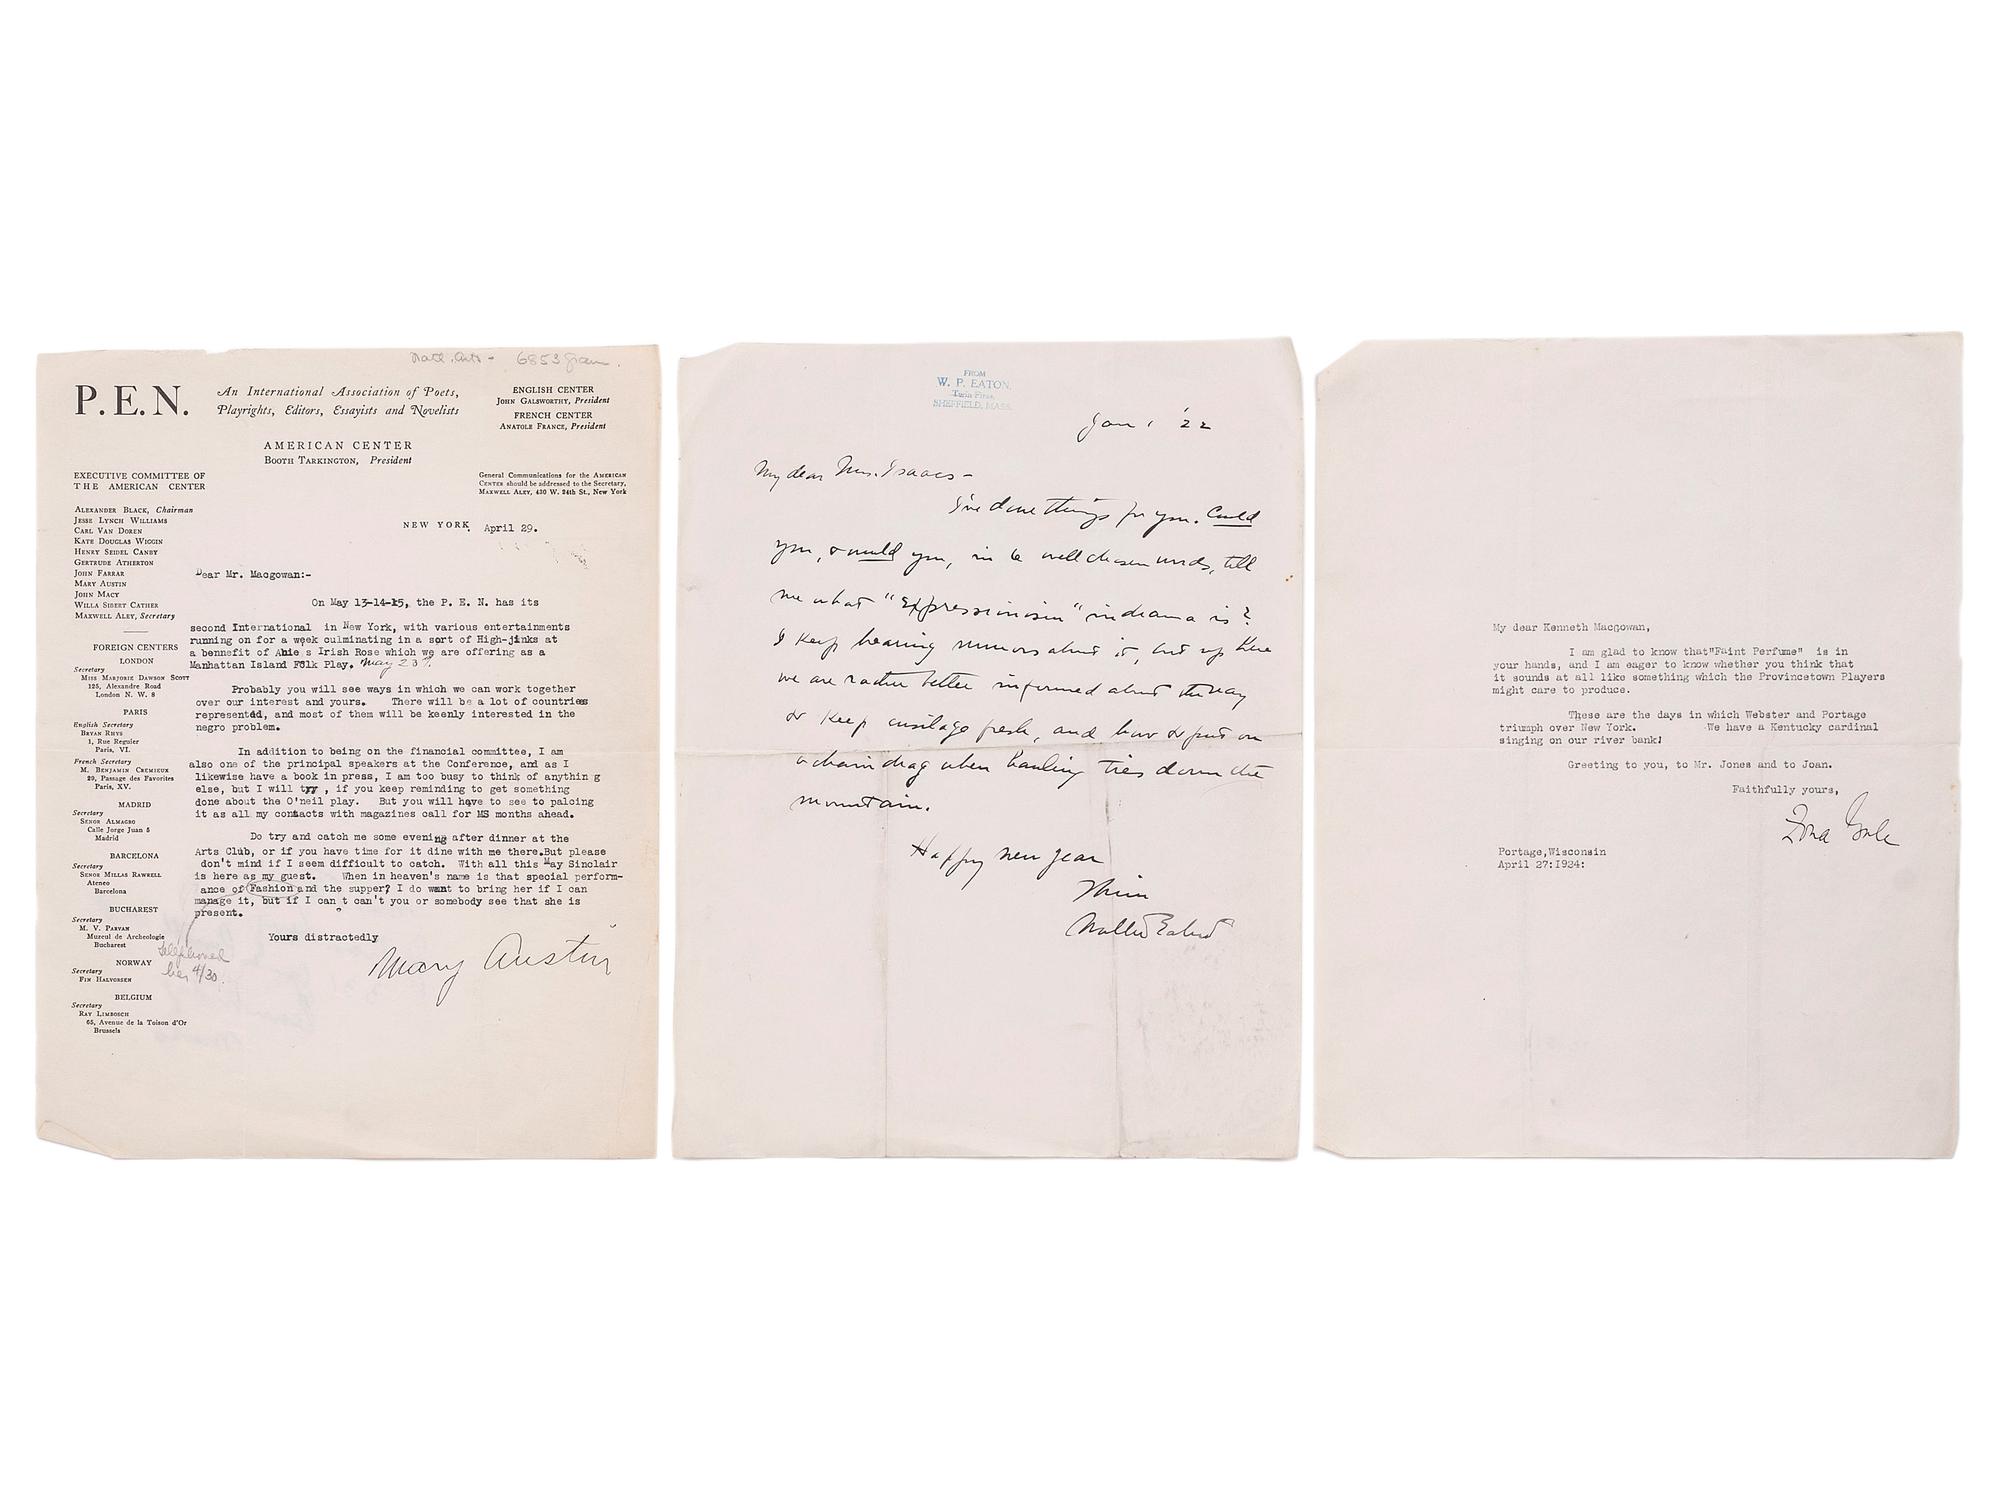 Natl. Arts - 6853 Gram.
P.E.N.
An International Association of Poets,
Playrights, Editors, Essayists and Novelists
ENGLISH CENTER
JOHN GALSWORTHY, President
FRENCH CENTER
ANATOLE FRANCE, President
AMERICAN CENTER
BOOTH TARKINGTON, President
EXECUTIVE COMMITTEE OF
THE AMERICAN CENTER
General Communications for the AMERICAN
CENTER should be addressed to the Secretary,
MAXWELL ALEY, 430 W. 24th St., New York
ALEXANDER BLACK, Chairman
JESSE LYNCH WILLIAMS
CARL VAN DOREN
KATE DOUGLAS WIGGIN
HENRY SEIDEL CANBY
GERTRUDE ATHERTON
JOHN FARRAR
MARY AUSTIN
JOHN MACY
WILLA SIBERT CATHER
MAXWELL ALEY, Secretary
FOREIGN CENTERS
LONDON
Secretary
MISS MARJORIE DAWSON SCOTT
125, Alexandre Road
London N. W. 8
PARIS
English Secretary
BRYAN RHYS
1, Rue Regnier
Paris, VI.
French Secretary
M. BENJAMIN CREMIEUX
29, Passage des Favorites
Paris, XV.
MADRID
Secretary
SENOR ALMAGRO
Calle Jorge Juan 6
Madrid
BARCELONA
Secretary
SENOR MILLAS RAWRELL
Ateneo
Barcelona
BUCHAREST
Secretary
M. V. PARVAN
Muzeul de Archeologie
Bucharest
NORWAY
Secretary
FIN HALVORSEN
BELGIUM
Secretary
RAY LIMBOSCH
65, Avenue de la Toison d'Or
Brussels
NEW YORK, April 29.
Dear Mr. Macgowan:-
On May 13-14-15, the P. E. N. has its
second International in New York, with various entertainments
running on for a week culminating in a sort of High-jinks at
a bennefit of Abie s Irish Rose which we are offering as a
Manhattan Island Folk Play. May 23d.
Probably you will see ways in which we can work together
over our interest and yours. There will be a lot of countries
represented, and most of them will be keenly interested in the
negro problem.
In addition to being on the financial committee, I am
also one of the principal speakers at the Conference, and as I
likewise have a book in press, I am too busy to think of anythin g
else, but I will try , if you keep reminding to get something
done about the O'neil play. But you will have to see to palcing
it as all my contacts with magazines call for MS months ahead.
Do try and catch me some evening after dinner at the
Arts Club, or if you have time for it dine with me there.But please
don't mind if I seem difficult to catch. With all this May Sinclair
is here as my guest. When in heaven's name is that special perform-
ance of Fashion and the supper? I do want to bring her if I can
manage it, but if I can t can't you or somebody see that she is
present.
Yours distractedly
Mary Austin
Telephoned
her 4/30.
FROM
W. P. EATON,
Twin Fires,
SHEFFIELD, MASS.
Jan 1 '22
My dear Mrs. Isaacs -
I've done things for you. Could
you, & would you, in 6 well chosen words, tell
me what "expressionism" in drama is?
I keep hearing rumors about it, but up here
we are rather better informed about the way
to keep ensilage fresh, and how to put on
a chain drag when hauling ties down the
mountain.
Happy new year
Thine
Walter Eaton
My dear Kenneth Macgowan,
I am glad to know that"Faint Perfume" is in
your hands, and I am eager to know whether you think that
it sounds at all like something which the Provincetown Players
might care to produce.
These are the days in which Webster and Portage
triumph over New York. We have a Kentucky cardinal
singing on our river bank!
Greeting to you, to Mr. Jones and to Joan.
Faithfully yours,
Zona Gale
Portage,Wisconsin
April 27:1924: